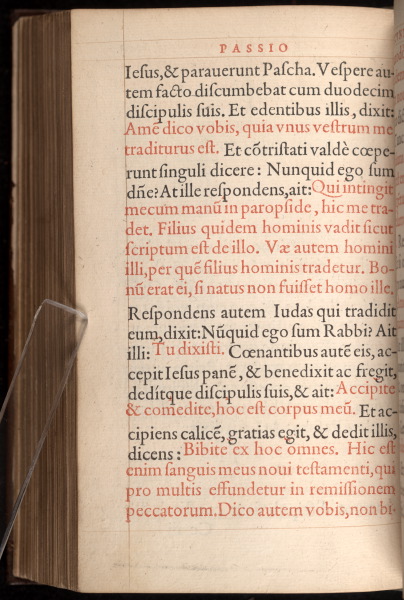 PASSIO
Iesus, & parauerunt Pascha. Vespere au-
tem facto discumbebat cum duodecim
discipulis suis. Et edentibus illis, dixit:
Amē dico vobis, quia vnus vestrum me
traditurus est. Et cōtristati valdè cœpe-
runt singuli dicere: Nunquid ego sum
dñe? At ille respondens, ait: Qui intingit
mecum manū in paropside, hic me tra-
det. Filius quidem hominis vadit sicut
scriptum est de illo. Væ autem homini
illi, per quē filius hominis tradetur. Bo-
nū erat ei, si natus non fuisset homo ille.
Respondens autem Iudas qui tradidit
eum, dixit: Nūquid ego sum Rabbi? Ait
illi: Tu dixisti. Cœnantibus autē eis, ac-
cepit Iesus panē, & benedixit ac fregit,
dedítque discipulis suis, & ait: Accipite
& comedite, hoc est corpus meū. Et ac-
cipiens calicē, gratias egit, & dedit illis,
dicens: Bibite ex hoc omnes. Hic est
enim sanguis meus noui testamenti, qui
pro multis effundetur in remissionem
peccatorum. Dico autem vobis, non bi-